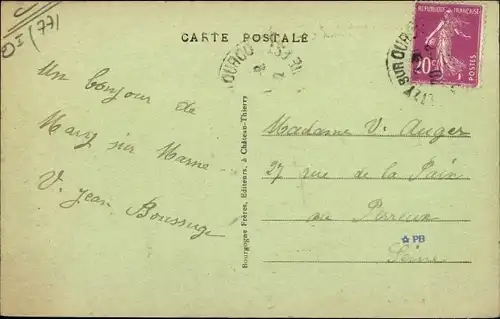 CARTE POSTALE
RÉPUBLIQUE FRANÇAISE
20c
POSTES
SUR OURCQ
Un bonjour de
Mary sur Marne
V. Jean
Madame V. Auger
27 rue de la Paix
au Perreux
Seine
Bourgogne Frères, Editeurs, à Château-Thierry
PB